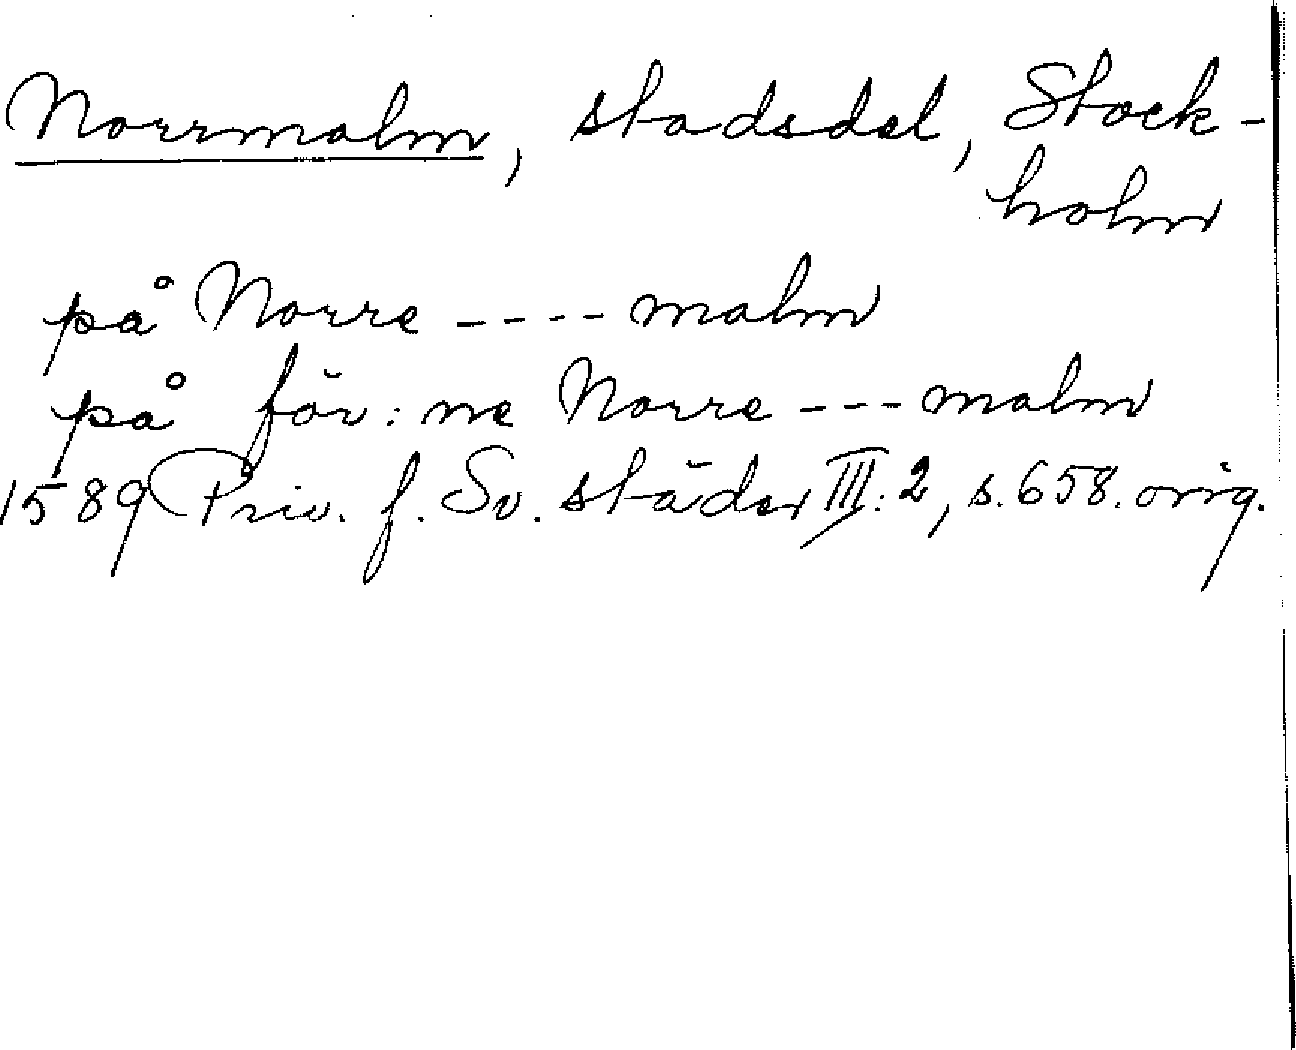 Norrmalm, stadsdel, Stock-
holm
på Norre ---- malm
på för:ne Norre --- malm
1589 Priv. f. Sv. städer III:2, s. 658. orig.